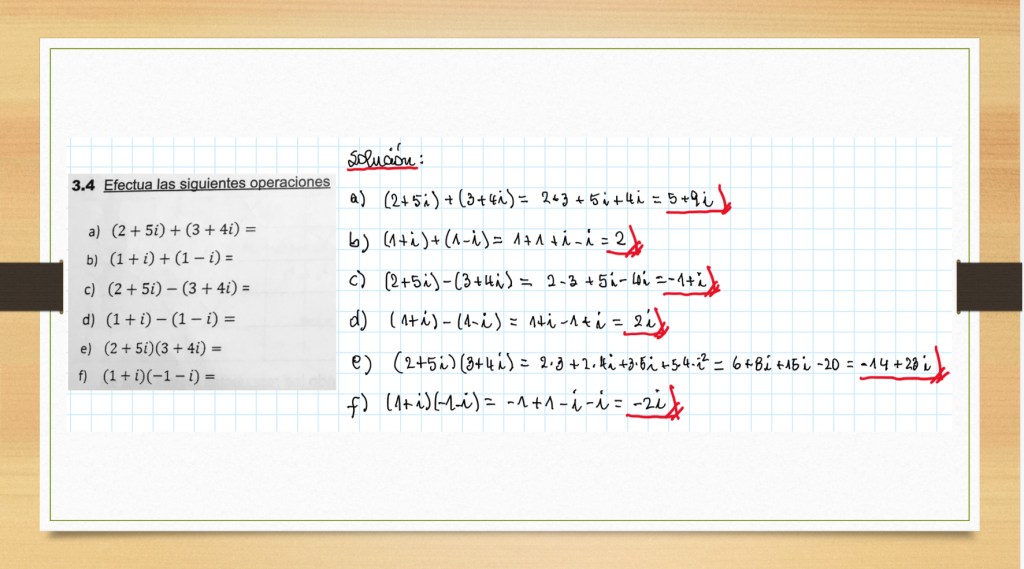 3.4 Efectua las siguientes operaciones
a) (2 + 5i) + (3 + 4i) =
b) (1 + i) + (1 − i) =
c) (2 + 5i) − (3 + 4i) =
d) (1 + i) − (1 − i) =
e) (2 + 5i)(3 + 4i) =
f) (1 + i)(−1 − i) =
Solución:
a) (2+5i)+(3+4i) = 2+3 + 5i+4i = 5+9i
b) (1+i)+(1-i) = 1+1+i-i = 2
c) (2+5i)-(3+4i) = 2-3 +5i-4i = -1+i
d) (1+i)-(1-i) = 1+i-1+i = 2i
e) (2+5i)(3+4i) = 2·3+2·4i+3·5i+5·4·i² = 6+8i+15i-20 = -14+23i
f) (1+i)(-1-i) = -1+1-i-i = -2i